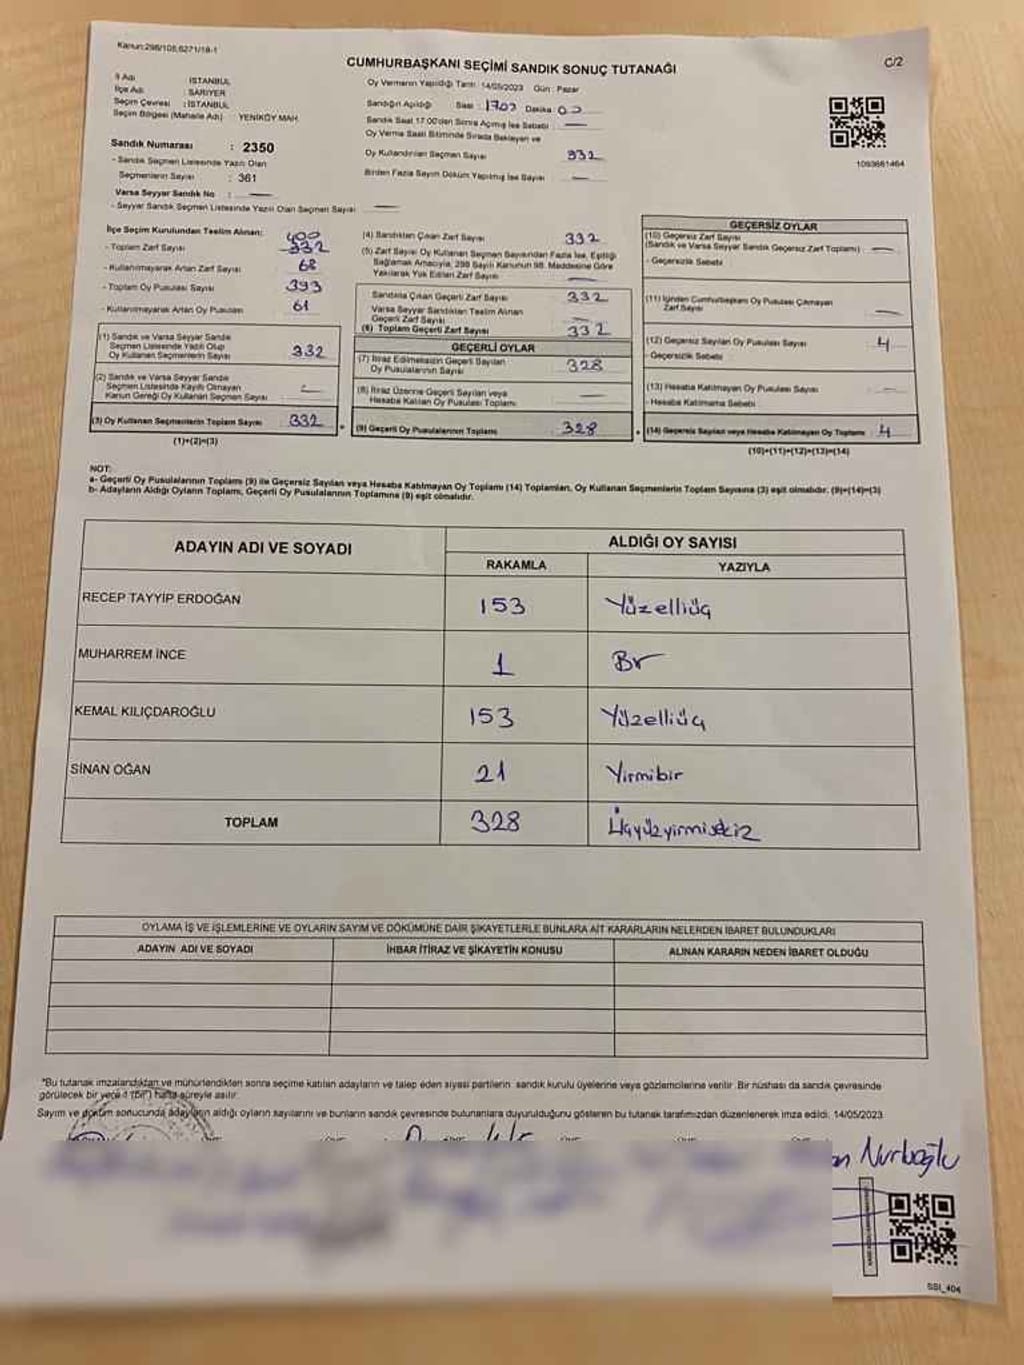 Kanun:298/105,6271/18-1
C/2
CUMHURBAŞKANI SEÇİMİ SANDIK SONUÇ TUTANAĞI
İl Adı : İSTANBUL
İlçe Adı : SARIYER
Seçim Çevresi : İSTANBUL
Seçim Bölgesi (Mahalle Adı) : YENİKÖY MAH.
Sandık Numarası : 2350
- Sandık Seçmen Listesinde Yazılı Olan
Seçmenlerin Sayısı : 361
Varsa Seyyar Sandık No : —
- Seyyar Sandık Seçmen Listesinde Yazılı Olan Seçmen Sayısı —
Oy Vermenin Yapıldığı Tarih: 14/05/2023 Gün : Pazar
Sandığın Açıldığı Saat : 1703 Dakika:
Sandık Saat 17.00'den Sonra Açılmış İse Sebebi —
Oy Verme Saati Bitiminde Sırada Bekleyen ve
Oy Kullandırılan Seçmen Sayısı 332
Birden Fazla Sayım Döküm Yapılmış İse Sayısı —
1093661464
İlçe Seçim Kurulundan Teslim Alınan: 400
- Toplam Zarf Sayısı 332
- Kullanılmayarak Artan Zarf Sayısı 68
- Toplam Oy Pusulası Sayısı 393
- Kullanılmayarak Artan Oy Pusulası 61
(1) Sandık ve Varsa Seyyar Sandık
Seçmen Listesinde Yazılı Olup
Oy Kullanan Seçmenlerin Sayısı 332
(2) Sandık ve Varsa Seyyar Sandık
Seçmen Listesinde Kaydı Olmayan
Kanun Gereği Oy Kullanan Seçmen Sayısı —
(3) Oy Kullanan Seçmenlerin Toplam Sayısı 332
(1)+(2)=(3)
(4) Sandıktan Çıkan Zarf Sayısı 332
(5) Zarf Sayısı Oy Kullanan Seçmen Sayısından Fazla İse, Eşitliği
Sağlamak Amacıyla, 298 Sayılı Kanunun 98. Maddesine Göre
Yakılarak Yok Edilen Zarf Sayısı —
Sandıkta Çıkan Geçerli Zarf Sayısı 332
Varsa Seyyar Sandıktan Teslim Alınan
Geçerli Zarf Sayısı —
(6) Toplam Geçerli Zarf Sayısı 332
GEÇERLİ OYLAR
(7) İtiraz Edilmeksizin Geçerli Sayılan
Oy Pusulalarının Sayısı 328
(8) İtiraz Üzerine Geçerli Sayılan veya
Hesaba Katılan Oy Pusulası Toplamı —
(9) Geçerli Oy Pusulalarının Toplamı 328
GEÇERSİZ OYLAR
(10) Geçersiz Zarf Sayısı
(Sandık ve Varsa Seyyar Sandık Geçersiz Zarf Toplamı) —
- Geçersizlik Sebebi
(11) İçinden Cumhurbaşkanı Oy Pusulası Çıkmayan
Zarf Sayısı —
(12) Geçersiz Sayılan Oy Pusulası Sayısı 4
- Geçersizlik Sebebi
(13) Hesaba Katılmayan Oy Pusulası Sayısı —
- Hesaba Katılmama Sebebi
(14) Geçersiz Sayılan veya Hesaba Katılmayan Oy Toplamı 4
(10)+(11)+(12)+(13)=(14)
NOT:
a- Geçerli Oy Pusulalarının Toplamı (9) ile Geçersiz Sayılan veya Hesaba Katılmayan Oy Toplamı (14) Toplamları, Oy Kullanan Seçmenlerin Toplam Sayısına (3) eşit olmalıdır. (9)+(14)=(3)
b- Adayların Aldığı Oyların Toplamı, Geçerli Oy Pusulalarının Toplamına (9) eşit olmalıdır.
ADAYIN ADI VE SOYADI
ALDIĞI OY SAYISI
RAKAMLA YAZIYLA
RECEP TAYYİP ERDOĞAN 153 Yüzelliüç
MUHARREM İNCE 1 Br
KEMAL KILIÇDAROĞLU 153 Yüzelliüç
SİNAN OĞAN 21 Yirmibir
TOPLAM 328 Üçyüzyirmisekiz
OYLAMA İŞ VE İŞLEMLERİNE VE OYLARIN SAYIM VE DÖKÜMÜNE DAİR ŞİKAYETLERLE BUNLARA AİT KARARLARIN NELERDEN İBARET BULUNDUKLARI
ADAYIN ADI VE SOYADI İHBAR İTİRAZ VE ŞİKAYETİN KONUSU ALINAN KARARIN NEDEN İBARET OLDUĞU
*Bu tutanak imzalandıktan ve mühürlendikten sonra seçime katılan adayların ve talep eden siyasi partilerin sandık kurulu üyelerine veya gözlemcilerine verilir. Bir nüshası da sandık çevresinde
görülecek bir yere 1 (bir) hafta süreyle asılır.
Sayım ve döküm sonucunda adayların aldığı oyların sayılarını ve bunların sandık çevresinde bulunanlara duyurulduğunu gösteren bu tutanak tarafımızdan düzenlenerek imza edildi. 14/05/2023
Nurbağlu
SSI_404